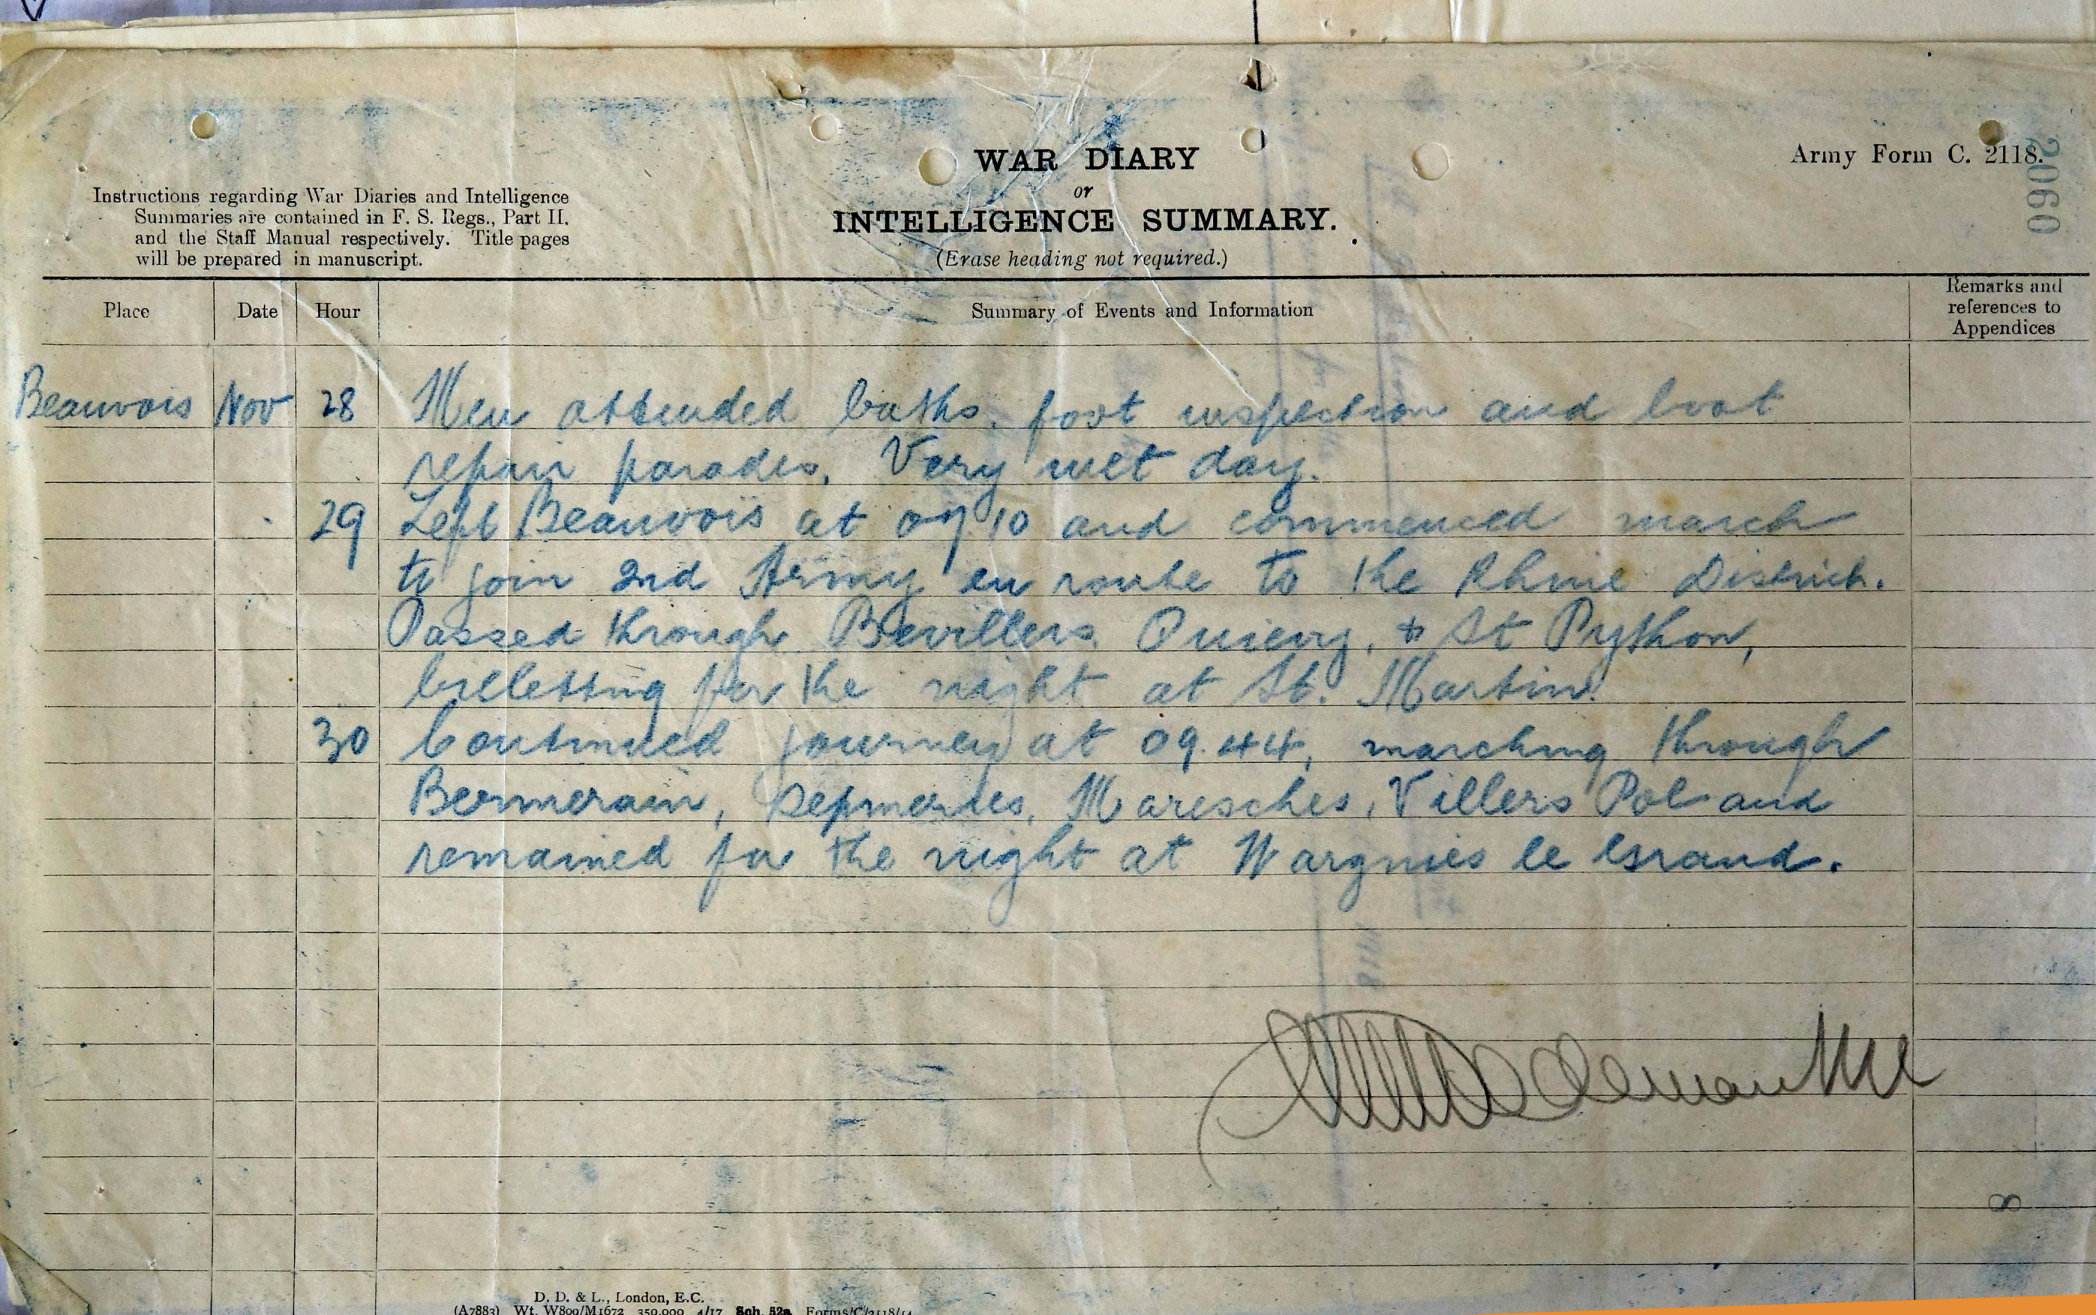 WAR DIARY
or
INTELLIGENCE SUMMARY.
(Erase heading not required.)
Army Form C. 2118.
2060
Instructions regarding War Diaries and Intelligence
Summaries are contained in F. S. Regs., Part II.
and the Staff Manual respectively. Title pages
will be prepared in manuscript.
Place Date Hour Summary of Events and Information Remarks and references to Appendices
Beauvois Nov 28 Men attended baths, foot inspection and boot
repair parades. Very wet day.
29 Left Beauvois at 09.10 and commenced march
to join 2nd Army en route to the Rhine District.
Passed through Bevillers, Quievy, + St Python,
billetting for the night at St. Martin.
30 Continued journey at 09.44, marching through
Bermerain, Sepmeries, Maresches, Villers Pol and
remained for the night at Wargnies le Grand.
8
D. D. & L., London, E.C.
(A7883) Wt. W809/M1672 350,000 4/17 Sch. 52a Forms/C/2118/14